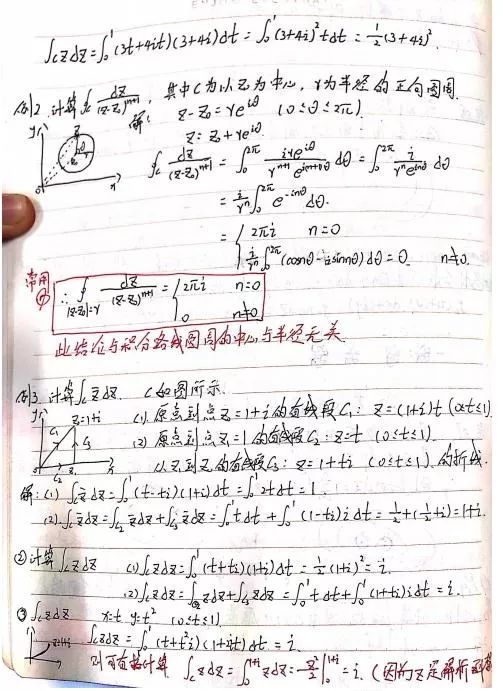 ∫_C z dz = ∫₀¹ (3t+4it)(3+4i)dt = ∫₀¹ (3+4i)² t dt = ½(3+4i)².
例2. 计算 ∮_C dz/(z-z₀)ⁿ⁺¹, 其中C为以z₀为中心, r为半径的正向圆周.
解: z-z₀=re^{iθ} (0≤θ≤2π)
z=z₀+re^{iθ}
∮_C dz/(z-z₀)ⁿ⁺¹ = ∫₀^{2π} ire^{iθ}/(rⁿ⁺¹e^{i(n+1)θ}) dθ = ∫₀^{2π} i/(rⁿe^{inθ}) dθ
= i/rⁿ ∫₀^{2π} e^{-inθ} dθ.
= { 2πi n=0
i/rⁿ ∫₀^{2π} (cosnθ-isinnθ)dθ=0. n≠0.
常用
∴ ∮_{|z-z₀|=r} dz/(z-z₀)ⁿ⁺¹ = { 2πi n=0
0 n≠0
此结论与积分路线圆周的中心与半径无关.
例3. 计算∫_C z̄dz. C如图所示.
(1). 原点到点z₀=1+i的直线段C₁: z=(1+i)t (0≤t≤1)
(2) 原点到点z₁=1的直线段C₂: z=t (0≤t≤1).
以z₁到z₀的直线段C₃: z=1+ti (0≤t≤1) 的折线.
解: (1) ∫_C z̄dz=∫₀¹(t-ti)(1+i)dt=∫₀¹2tdt=1.
(2). ∫_C z̄dz=∫_{C₂} z̄dz+∫_{C₃} z̄dz=∫₀¹tdt+∫₀¹(1-ti)idt=½+(½+i)=1+i.
② 计算∫_C zdz (1) ∫_C zdz=∫₀¹(t+ti)(1+i)dt=½(1+i)²=i.
(2) ∫_C zdz=∫_{C₂} zdz+∫_{C₃} zdz=∫₀¹tdt+∫₀¹(1+ti)idt=i.
③ ∫_C zdz x=t y=t² (0≤t≤1)
∫_C zdz=∫₀¹(t+t²i)(1+i2t)dt=i.
可直接计算 ∫_C zdz=∫₀^{1+i} zdz=z²/2|₀^{1+i}=i. (因为z是解析函数